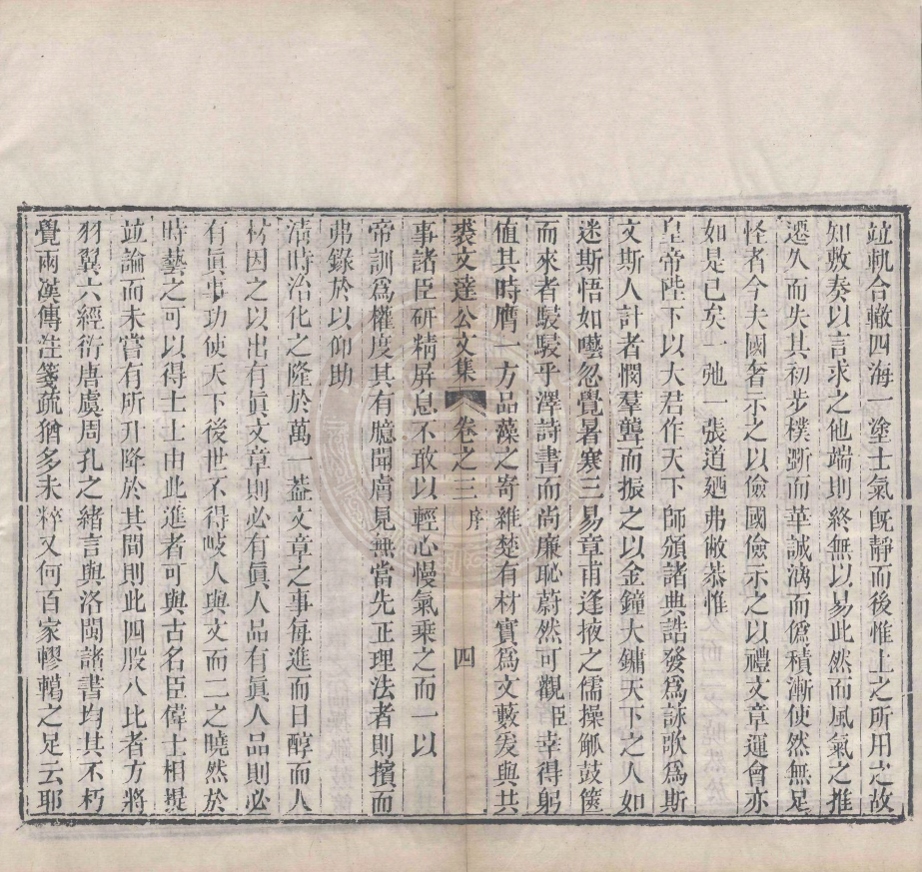 竝軌合轍四海一塗士氣旣靜而後惟上之所用之故
知敷奏以言求之他端則終無以易此然而風氣之推
遷久而失其初步樸斵而華誠漓而僞積漸使然無足
怪者今夫國奢示之以儉國儉示之以禮文章運會亦
如是已矣一弛一張道廼弗敝恭惟
皇帝陛下以大君作天下師頒諸典誥發爲詠歌爲斯
文斯人計者憫羣聾而振之以金鐘大鏞天下之人如
迷斯悟如囈忽覺暑寒三易章甫逢掖之儒操觚鼓篋
而來者駸駸乎澤詩書而尚廉恥蔚然可觀臣幸得躬
值其時膺一方品藻之寄雜楚有材實爲文藪爰與共
裘文達公文集 卷之三 序 四
事諸臣研精屏息不敢以輕心慢氣乘之而一以
帝訓爲權度其有臆闻膚見無當先正理法者則擯而
弗錄於以仰助
淸時治化之隆於萬一葢文章之事每進而日醇而人
材因之以出有眞文章則必有眞人品有眞人品則必
有眞事功使天下後世不得岐人與文而二之曉然於
時藝之可以得士士由此進者可與古名臣偉士相提
竝論而未嘗有所升降於其間則此四股八比者方將
羽翼六經衍唐虞周孔之緒言與洛閩諸書均其不朽
覺兩漢傳注箋疏猶多未粹又何百家轇轕之足云耶